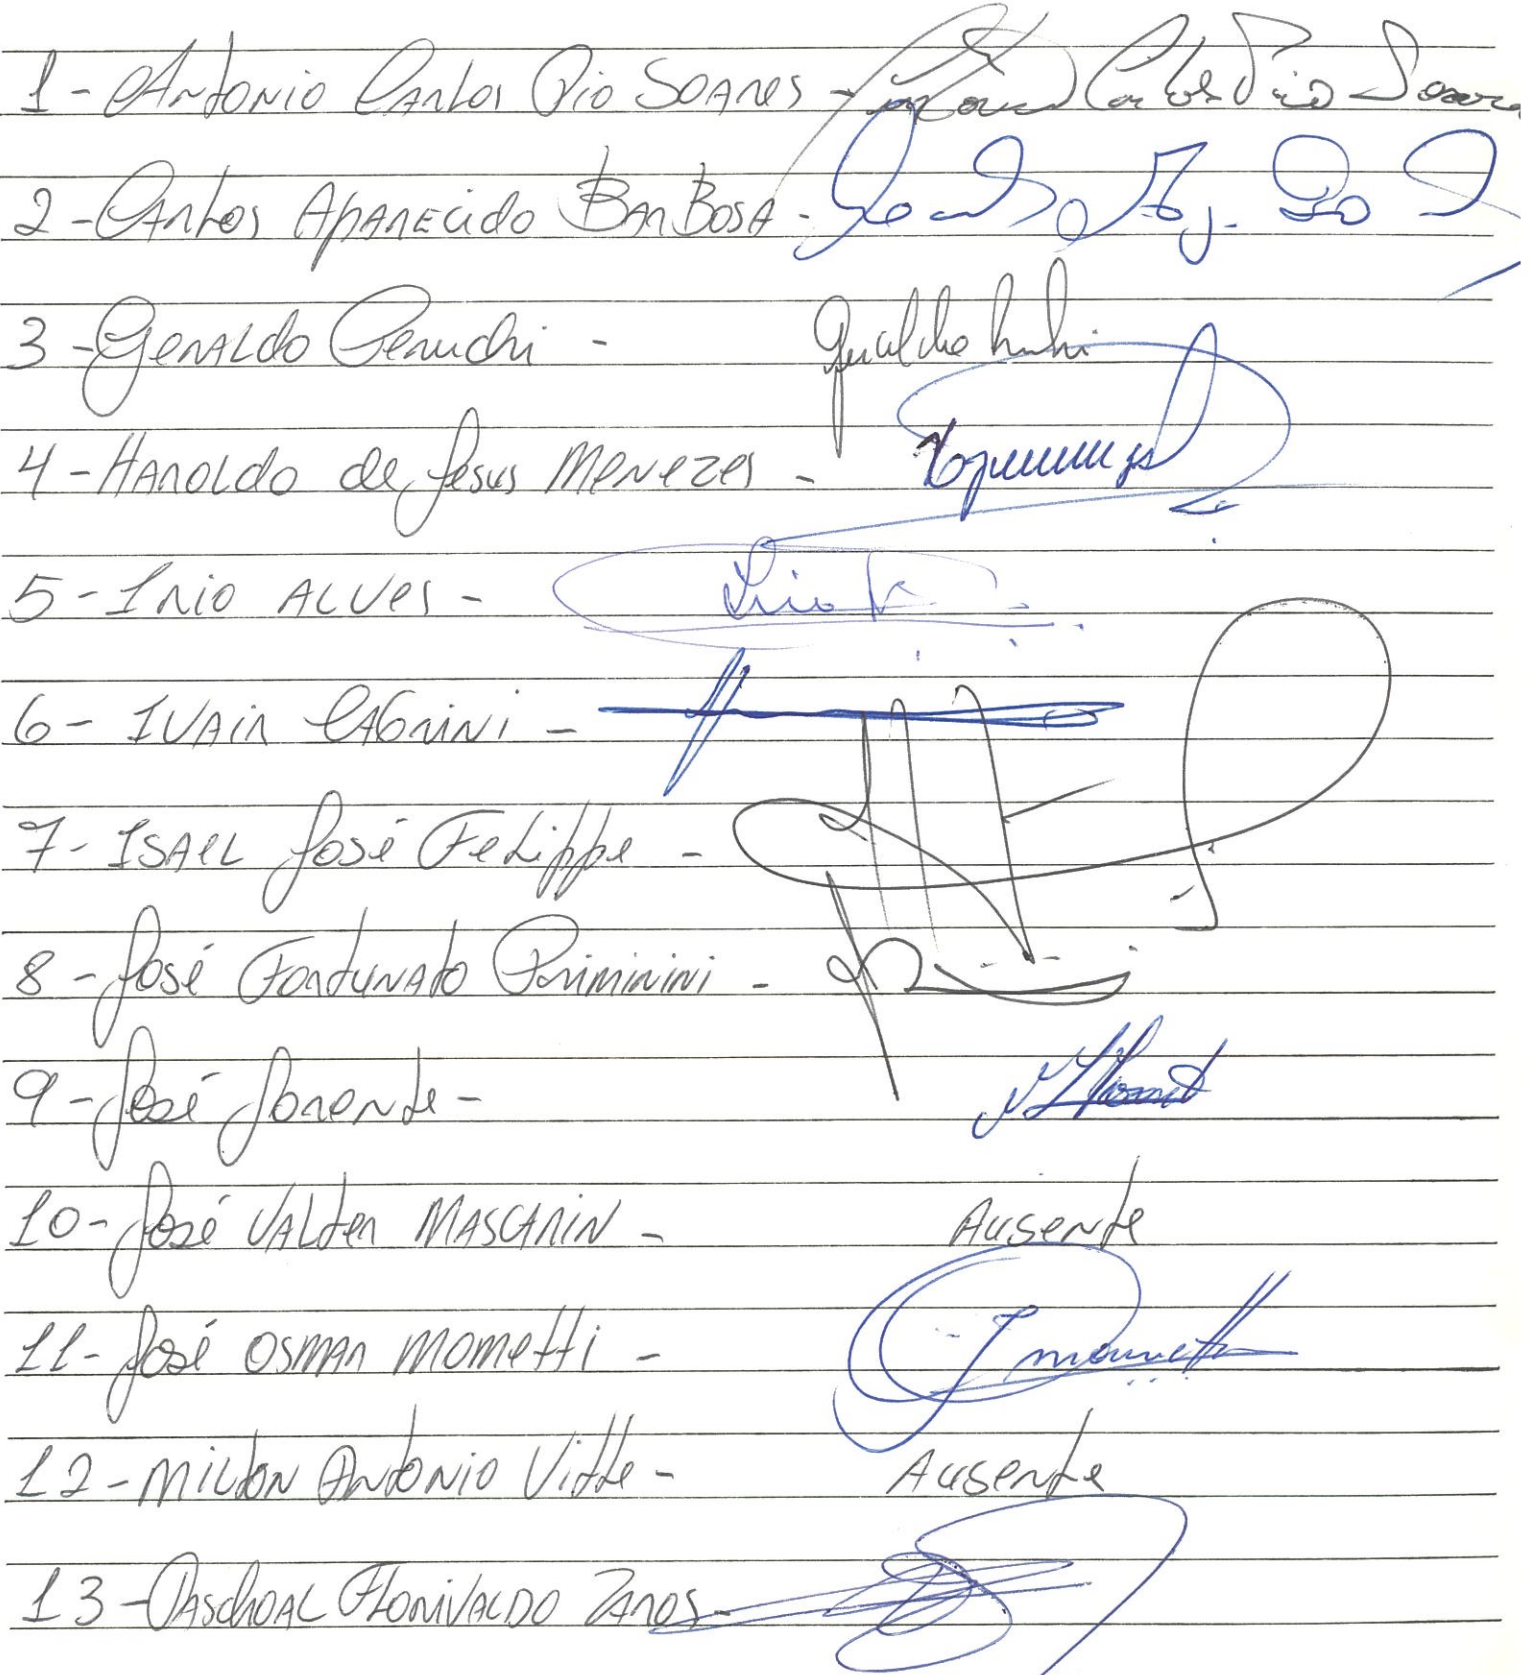 1 - Antonio Carlos Pio Soares - Antonio Carlos Pio Soares
2 - Carlos Aparecido Barbosa -
3 - Geraldo Peruchi - Geraldo Peruchi
4 - Haroldo de Jesus Menezes -
5 - Irio Alves - Irio
6 - Ivair Cagnini -
7 - Isael José Felippe -
8 - José Fortunato Priminini -
9 - José Lorente -
10 - José Valter Mascarin - Ausente
11 - José Osmar Mometti - J Mometti
12 - Milton Antonio Vitte - Ausente
13 - Paschoal Florivaldo Zaros -